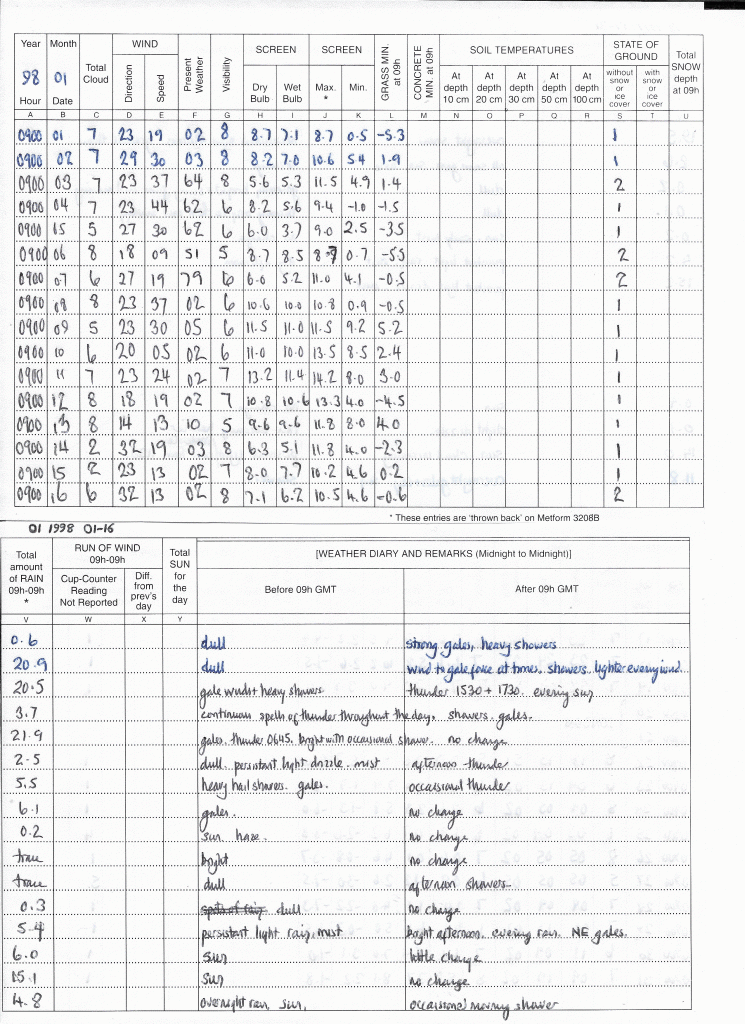 Year Month Total Cloud WIND Present Weather Visibility SCREEN SCREEN GRASS MIN. at 09h CONCRETE MIN. at 09h SOIL TEMPERATURES STATE OF GROUND Total SNOW depth at 09h
98 01 Direction Speed Dry Bulb Wet Bulb Max. * Min. At depth 10 cm At depth 20 cm At depth 30 cm At depth 50 cm At depth 100 cm without snow or ice cover with snow or ice cover
Hour Date
A B C D E F G H I J K L M N O P Q R S T U
0900 01 7 23 19 02 8 8.7 7.1 8.7 0.5 -5.3 1
0900 02 7 29 30 03 8 8.2 7.0 10.6 5.4 1.9 1
0900 03 7 23 37 64 8 5.6 5.3 11.5 4.9 1.4 2
0900 04 7 23 44 62 6 8.2 5.6 9.4 -1.0 -1.5 1
0900 5 27 30 62 6 6.0 3.7 9.0 2.5 -3.5 1
0900 06 8 18 09 51 5 8.7 8.5 0.7 -5.5 2
0900 07 6 27 19 79 6 6.0 5.2 11.0 4.1 -0.5 2
0900 08 8 23 37 02 6 10.6 10.0 10.8 0.9 -0.5 1
0900 09 5 23 30 05 6 11.5 11.0 11.5 9.2 5.2 1
0900 10 6 20 05 02 6 11.0 10.0 13.5 8.5 2.4 1
0900 11 7 23 24 02 7 13.2 11.4 14.2 8.0 3.0 1
0900 12 8 18 19 02 7 10.8 10.6 13.3 4.0 -4.5 1
0900 13 8 14 13 10 5 9.6 9.6 11.8 8.0 4.0 1
0900 14 2 32 19 03 8 6.3 5.1 11.8 4.0 -2.3 1
0900 15 2 23 13 02 7 8.0 7.7 10.2 4.6 0.2 1
0900 16 6 32 13 02 8 7.1 6.2 10.5 4.6 -0.6 2
* These entries are 'thrown back' on Metform 3208B
01 1998 01-16
Total amount of RAIN 09h-09h * RUN OF WIND 09h-09h Total SUN for the day [WEATHER DIARY AND REMARKS (Midnight to Midnight)]
Cup-Counter Reading Not Reported Diff. from prev's day Before 09h GMT After 09h GMT
V W X Y
0.6 dull strong gales, heavy showers
20.9 dull wind to gale force at times. showers. lighter evening wind.
20.5 gale winds + heavy showers thunder 1530 + 1730. evening sun
3.7 continuous spells of thunder throughout the day, showers. gales.
21.9 gales. thunder 0645. bright with occasional shower. no change
2.5 dull. persistent light drizzle. mist afternoon thunder
5.5 heavy hail showers. gales. occasional thunder
6.1 gales. no change
0.2 sun. haze. no change
trace bright no change
trace dull afternoon showers
0.3 spots of rain dull. no change
5.4 persistent light rain, mist bright afternoon. evening rain. NE gales.
6.0 sun little change
15.1 sun no change
4.8 overnight rain, sun. occasional morning shower